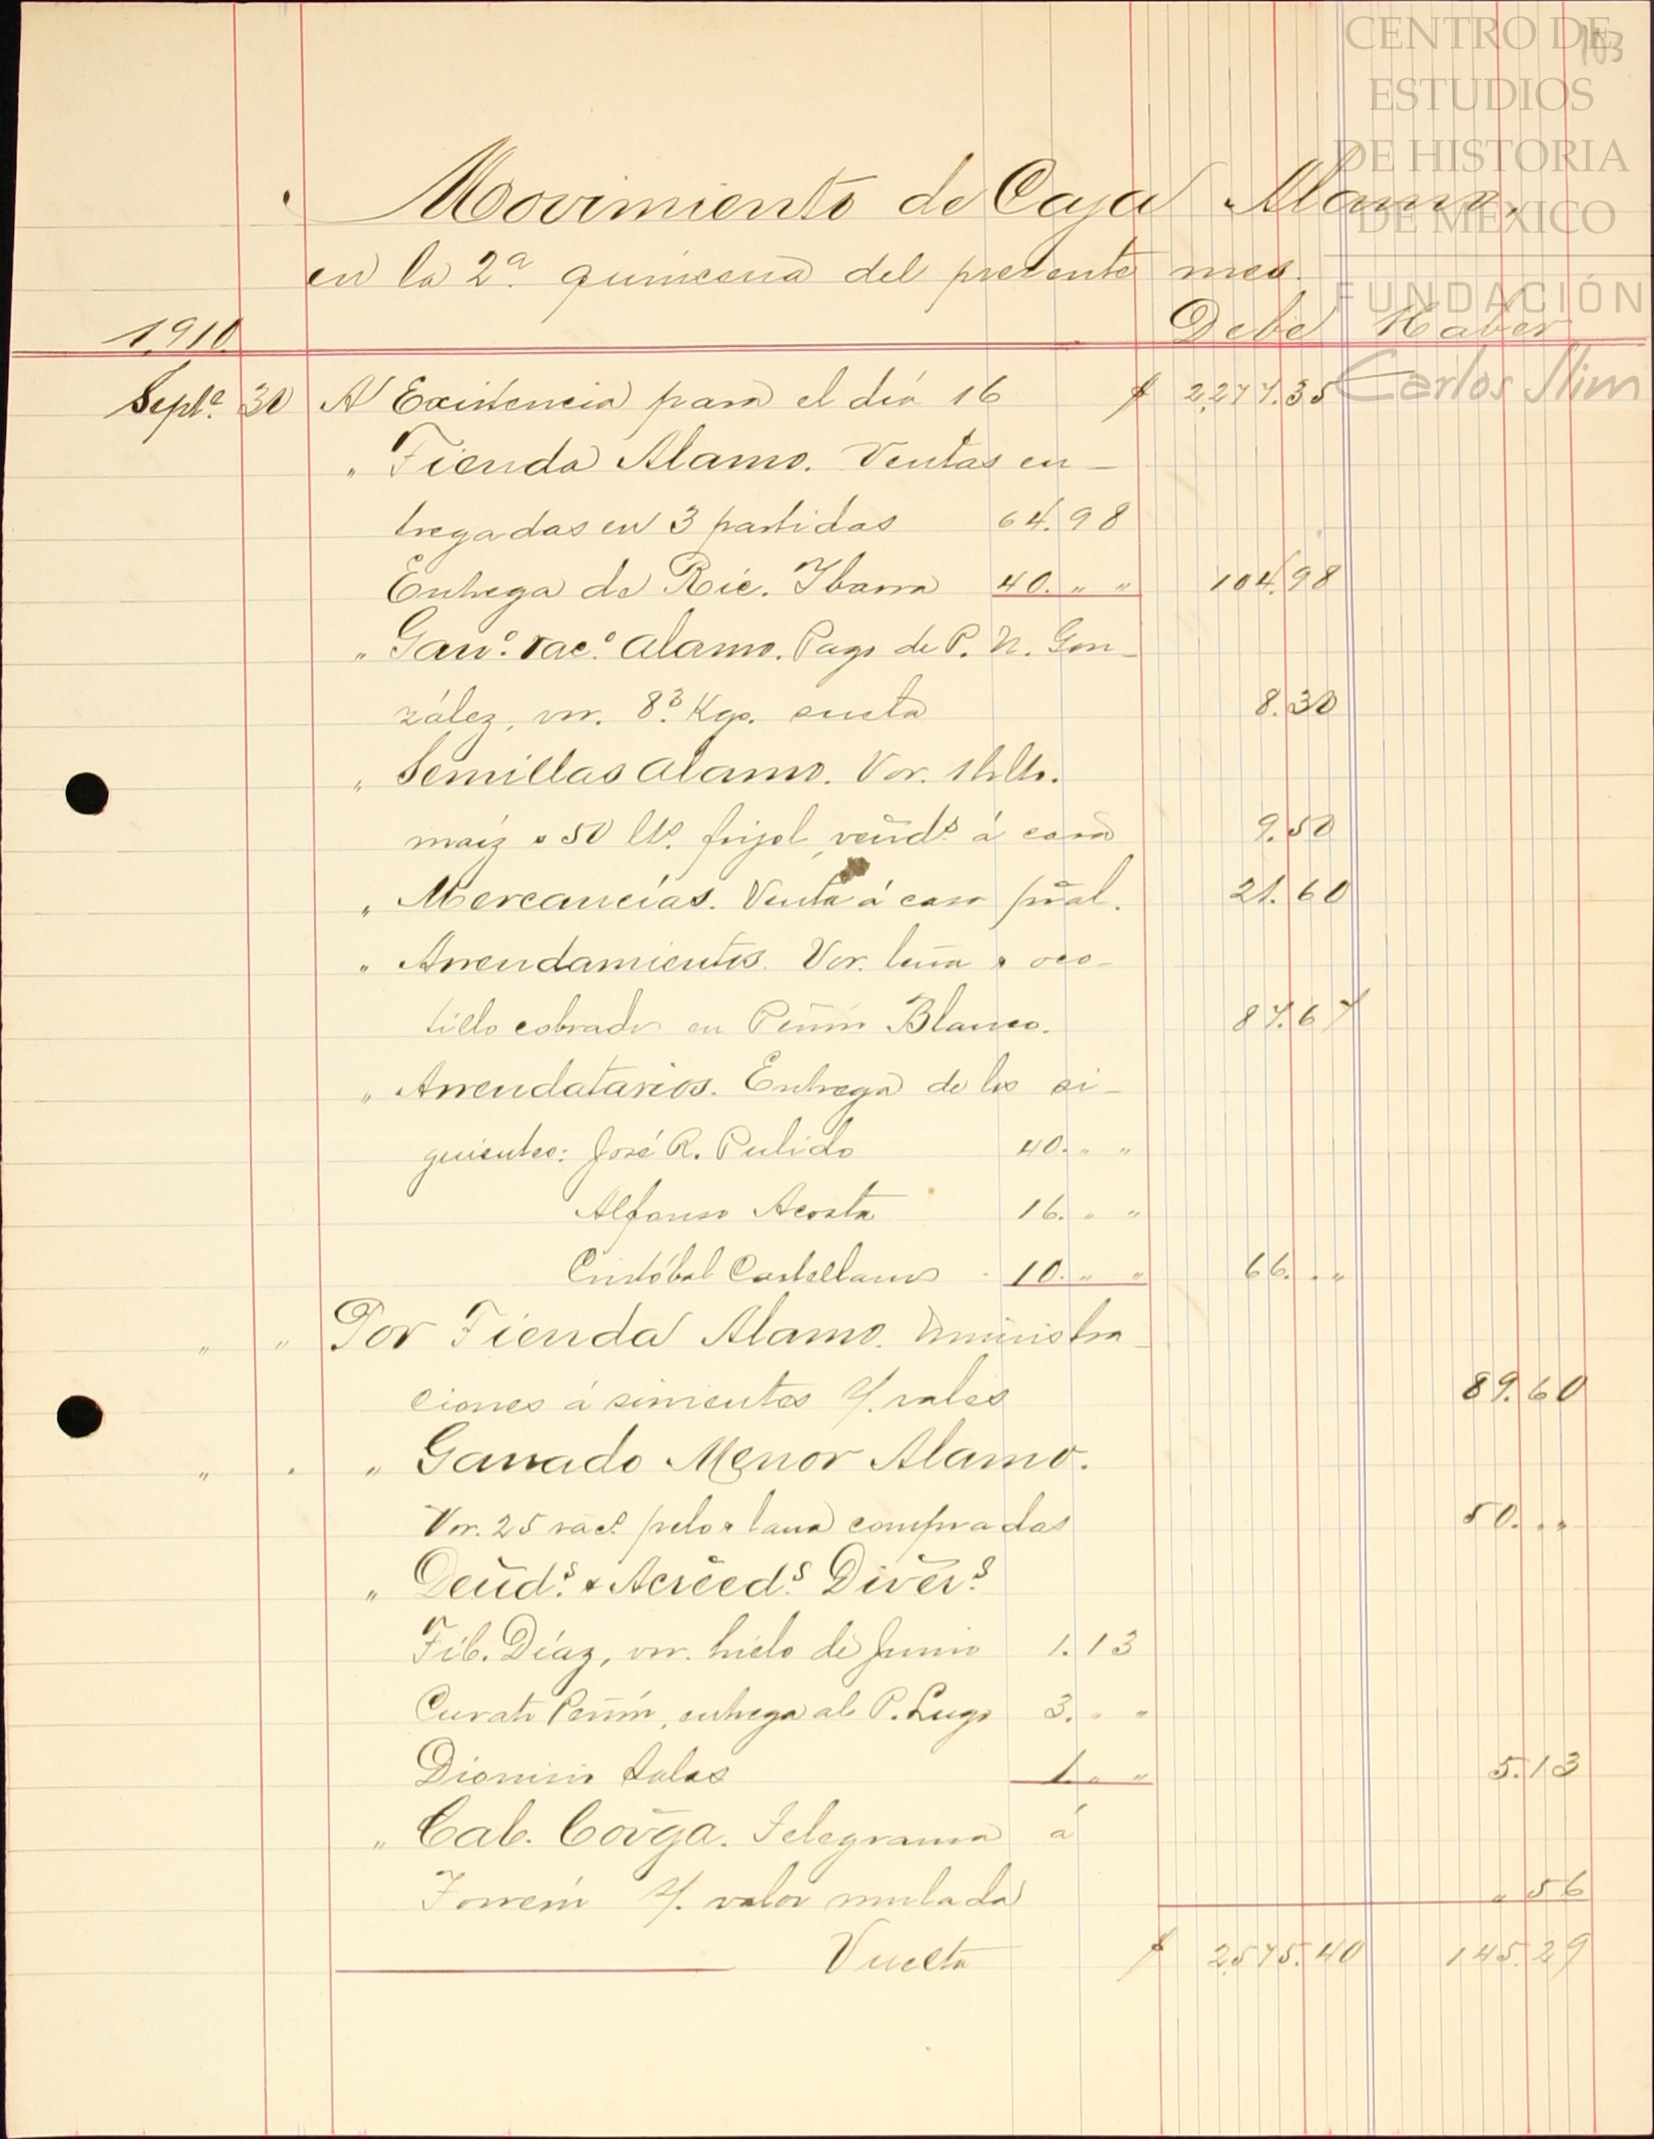 CENTRO DE
ESTUDIOS
DE HISTORIA
DE MÉXICO
FUNDACIÓN
Carlos Slim
103
Movimiento de Caja Alamo.
en la 2ª quincena del presente mes.
1910. Debe Haber
Septe. 30 A Existencia para el día 16 $ 2,277.35
" Tienda Alamo. Ventas en-
tregadas en 3 partidas 64.98
Entrega de Ric. Ibarra 40. " " 104.98
" Gano. vaco. Alamo. Pago de P. N. Gon-
zález, vr. 8.3 Kgs. suela 8.30
" Semillas Alamo. Vor. 1 hlt.
maíz & 50 lts. frijol, vends. á casa 9.50
" Mercancías. Venta á casa pral. 21.60
" Arrendamientos. Vor. leña & oco-
tillo cobrado en Peñón Blanco. 87.67
" Arrendatarios. Entrega de los si-
guientes: José R. Pulido 40. " "
Alfonso Acosta 16. " "
Cristóbal Castellanos 10. " " 66. " "
" " Por Tienda Alamo. Sministra-
ciones á sirvientes s/. vales 89.60
" " " Ganado Menor Alamo.
Vor. 25 racs. pelo & lana compradas 50. " "
" Deuds. & Acreeds. Divers.
Tib. Díaz, vr. hielo de Junio 1.13
Curato Peñón, entrega al P. Lugo 3. " "
Dionisio Salas 1. " " 5.13
" Cab. Covga. Telegrama á
Torreón s/. valor mulada " 56
Vuelta $ 2,575.40 145.29